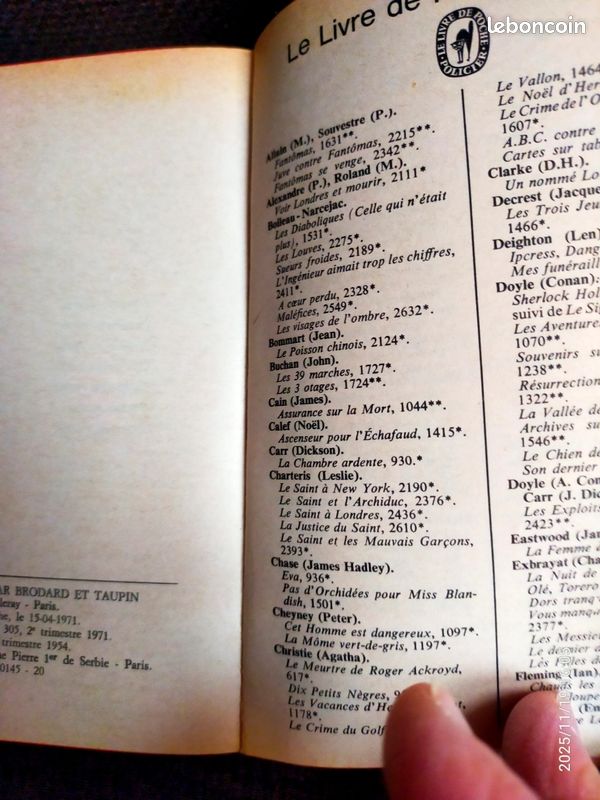 AR BRODARD ET TAUPIN
- Paris.
le 15-04-1971.
305, 2e trimestre 1971.
trimestre 1954.
Pierre 1er de Serbie - Paris.
0145 - 20
Le Livre de
LE LIVRE DE POCHE
POLICIER
leboncoin
Allain (M.), Souvestre (P.).
Fantômas, 1631**.
Juve contre Fantômas, 2215**.
Fantômas se venge, 2342**.
Alexandre (P.), Roland (M.).
Voir Londres et mourir, 2111*
Boileau-Narcejac.
Les Diaboliques (Celle qui n'était
plus), 1531*.
Les Louves, 2275*.
Sueurs froides, 2189*.
L'Ingénieur aimait trop les chiffres,
2411*.
A cœur perdu, 2328*.
Maléfices, 2549*.
Les visages de l'ombre, 2632*.
Bommart (Jean).
Le Poisson chinois, 2124*.
Buchan (John).
Les 39 marches, 1727*.
Les 3 otages, 1724**.
Cain (James).
Assurance sur la Mort, 1044**.
Calef (Noël).
Ascenseur pour l'Échafaud, 1415*.
Carr (Dickson).
La Chambre ardente, 930.*
Charteris (Leslie).
Le Saint à New York, 2190*.
Le Saint et l'Archiduc, 2376*.
Le Saint à Londres, 2436*.
La Justice du Saint, 2610*.
Le Saint et les Mauvais Garçons,
2393*.
Chase (James Hadley).
Eva, 936*.
Pas d'Orchidées pour Miss Blan-
dish, 1501*.
Cheyney (Peter).
Cet Homme est dangereux, 1097*.
La Môme vert-de-gris, 1197*.
Christie (Agatha).
Le Meurtre de Roger Ackroyd,
617*.
Dix Petits Nègres, 9
Les Vacances
1178*.
Le Crime du Golf
Le Vallon, 1464
Le Noël d'Her
Le Crime de l'O
1607*.
A.B.C. contre
Cartes sur tab
Clarke (D.H.).
Un nommé Lo
Decrest (Jacque
Les Trois Jeu
1466*.
Deighton (Len)
Ipcress, Dang
Mes funéraill
Doyle (Conan):
Sherlock Hol
suivi de Le Si
Les Aventure
1070**.
Souvenirs su
1238**.
Résurrection
1322**.
La Vallée de
Archives su
1546**.
Le Chien de
Son dernier
Doyle (A. Con
Carr (J. Dic
Les Exploits
2423**.
Eastwood (Ja
La Femme à
Exbrayat (Cha
La Nuit de
Olé, Torero
Dors tranq
Vous
2377*.
Les Messie
Le dernier d
Les Filles de
Fleming (Ian).
Chauds les